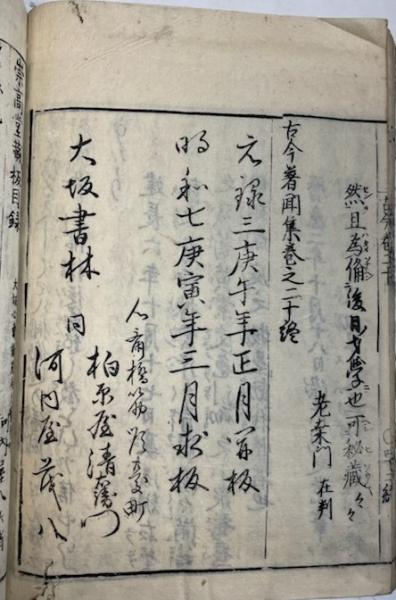 然且為備後日才学也可秘蔵々々
老桑門 在判
古今著聞集巻之二十終
元禄三庚午年正月開板
明和七庚寅年三月求板
心斎橋筋順慶町
柏原屋清右衛門
大坂書林 同
河内屋茂八
崇高堂蔵板目録